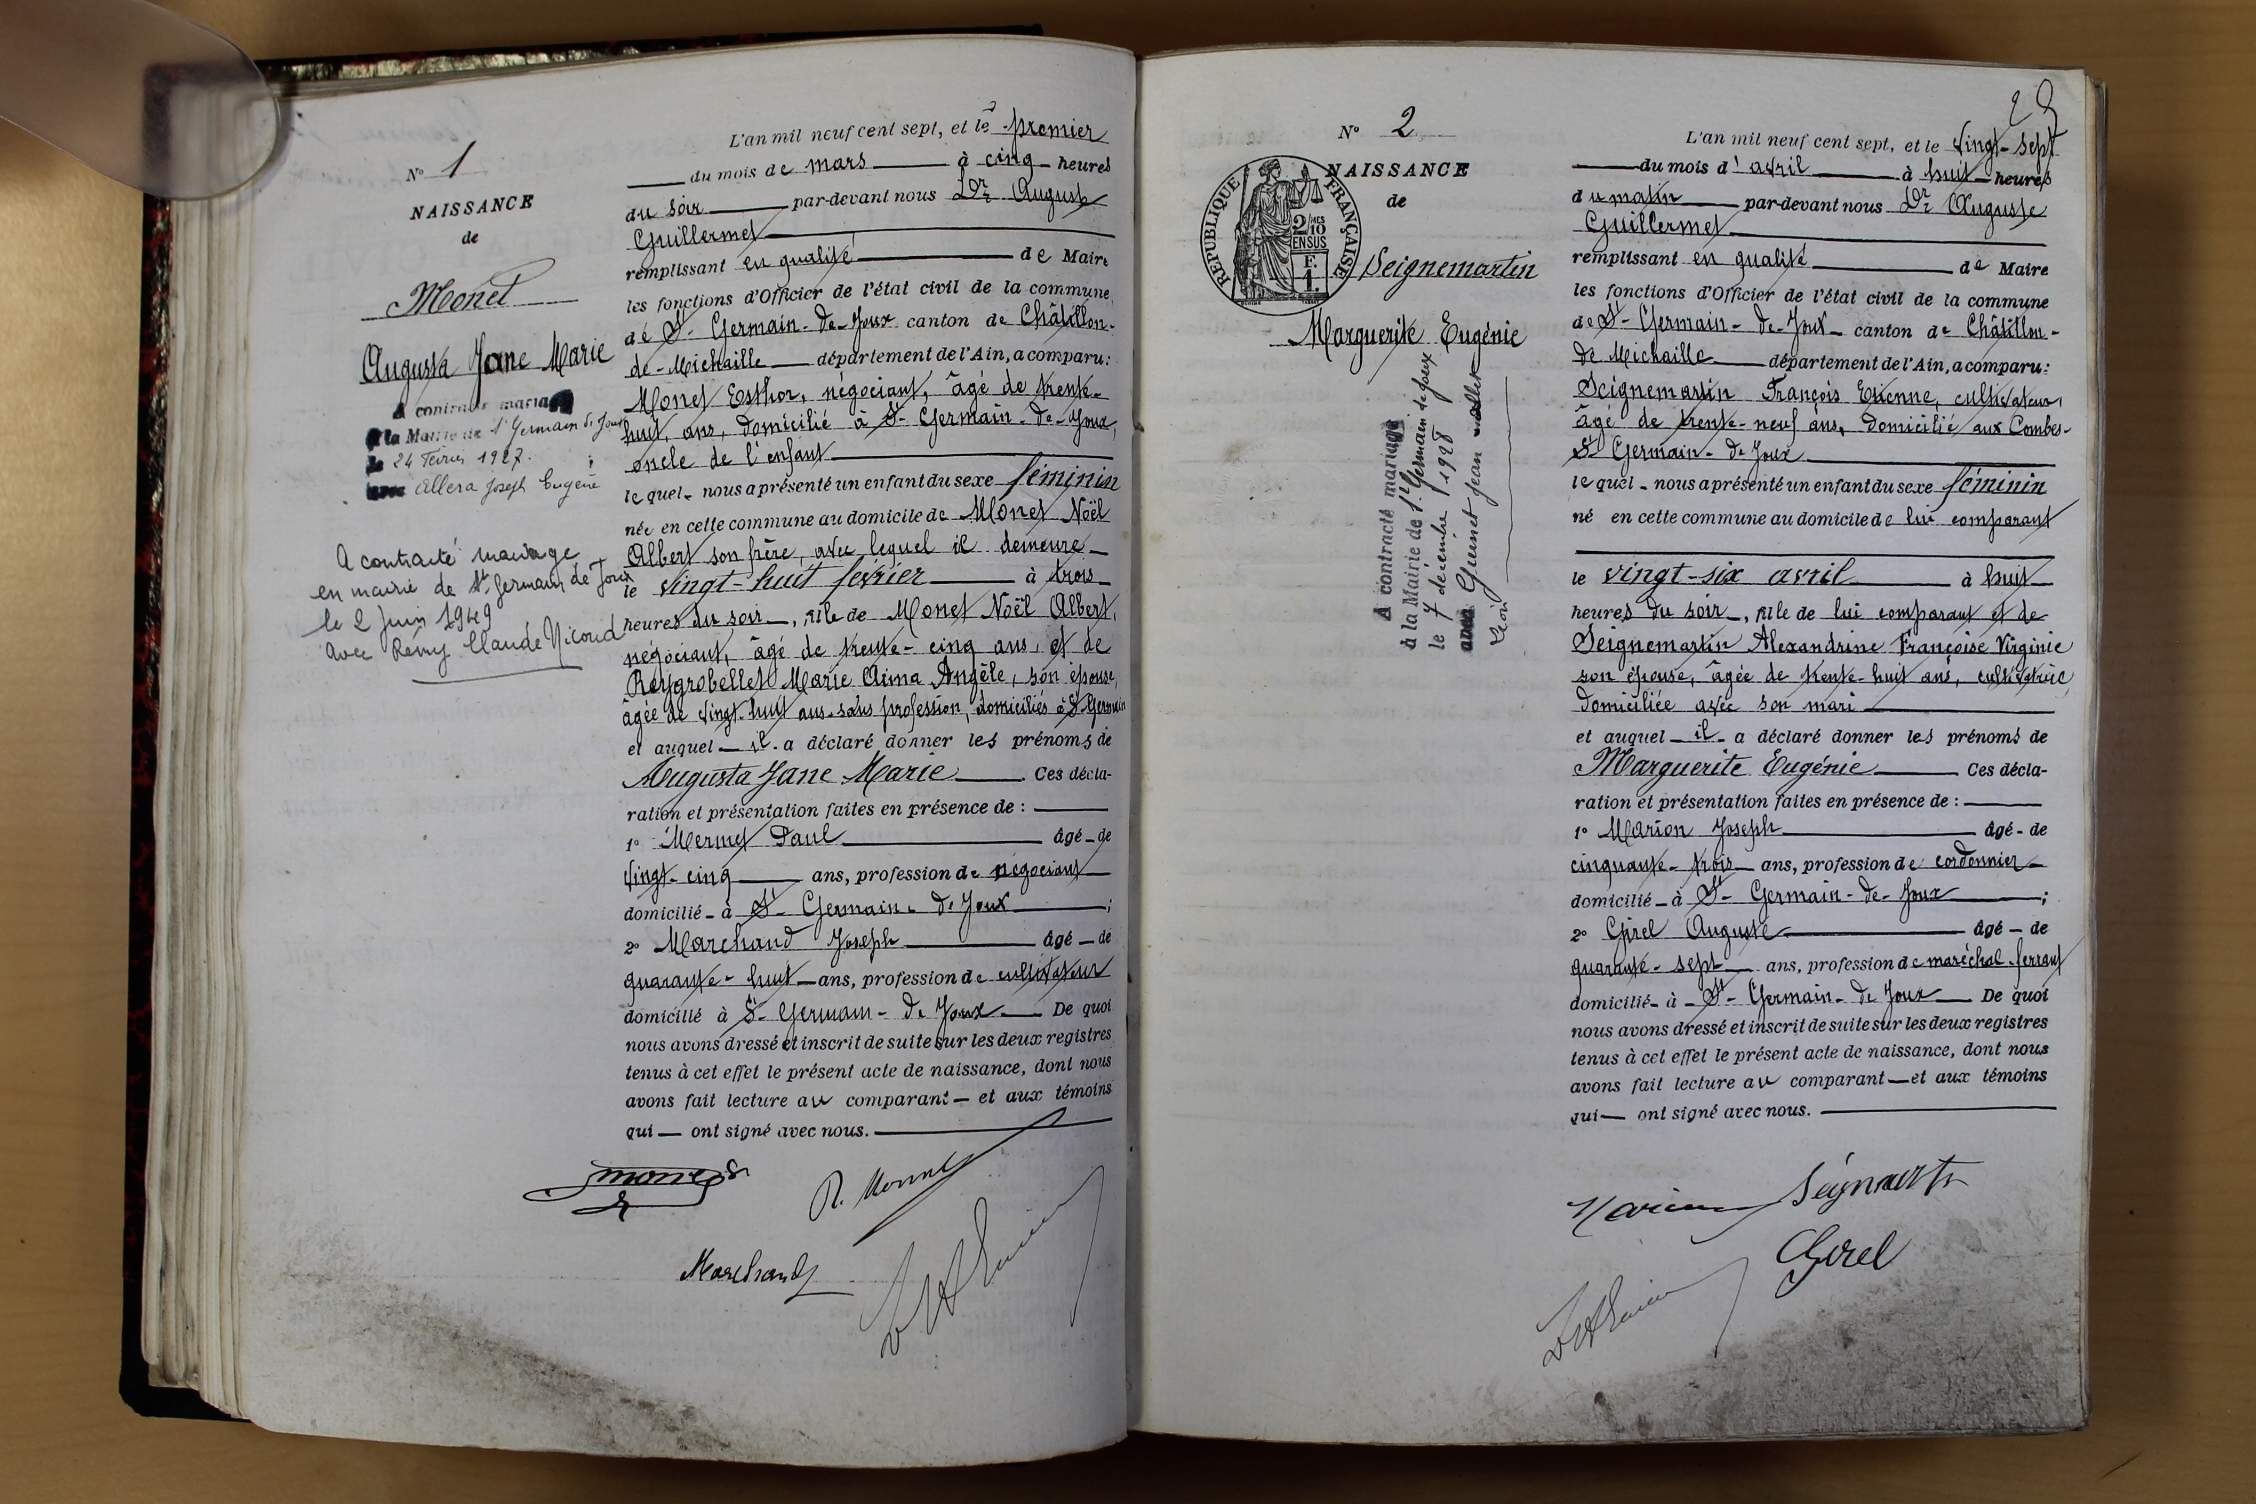 N° 1
NAISSANCE
de
Monet
Augusta Jane Marie
A contracté mariage
à la Mairie de St Germain de Joux
le 24 Février 1927.
avec Allera Joseph Eugène
A contracté mariage
en mairie de St Germain de Joux
le 2 Juin 1949
avec Rémy Claude Nicoud
L'an mil neuf cent sept, et le premier
du mois de mars à cinq heures
du soir par-devant nous Dr Auguste
Guillermet
remplissant en qualité de Maire
les fonctions d'Officier de l'état civil de la commune
de St Germain-de-Joux canton de Châtillon-
de-Michaille département de l'Ain, a comparu:
Monet Esthor, négociant, âgé de trente-
huit, ans, domicilié à St Germain-de-Joux,
oncle de l'enfant
lequel nous a présenté un enfant du sexe féminin
née en cette commune au domicile de Monet Noël
Albert son frère, avec lequel il demeure
le vingt-huit février à trois
heures du soir, fille de Monet Noël Albert,
négociant, âgé de trente-cinq ans, et de
Reygrobellet Marie Aima Angèle, son épouse,
âgée de vingt-huit ans sans profession, domiciliés à St Germain
et auquel il a déclaré donner les prénoms de
Augusta Jane Marie Ces décla-
ration et présentation faites en présence de :
1° Mermet Paul âgé de
vingt-cinq ans, profession de négociant
domicilié à St Germain de Joux ;
2° Marchand Joseph âgé de
quarante-huit ans, profession de cultivateur
domicilié à St Germain-de Joux De quoi
nous avons dressé et inscrit de suite sur les deux registres
tenus à cet effet le présent acte de naissance, dont nous
avons fait lecture au comparant et aux témoins
qui ont signé avec nous.
Marchand
23
N° 2
NAISSANCE
de
RÉPUBLIQUE FRANÇAISE
2/10 MES
EN SUS
F.
1.
Seignemartin
Marguerite Eugénie
A contracté mariage
à la Mairie de St Germain de Joux
le 7 décembre 1928
avec Guinet Jean
Léon
L'an mil neuf cent sept, et le vingt-sept
du mois d'avril à huit heures
du matin par-devant nous Dr Auguste
Guillermet
remplissant en qualité de Maire
les fonctions d'Officier de l'état civil de la commune
de St Germain-de-Joux canton de Châtillon-
de Michaille département de l'Ain, a comparu:
Seignemartin François Etienne, cultivateur,
âgé de trente-neuf ans, domicilié aux Combes-
St Germain-de Joux
lequel nous a présenté un enfant du sexe féminin
né en cette commune au domicile de lui comparant
le vingt-six avril à huit
heures du soir, fille de lui comparant et de
Seignemartin Alexandrine Françoise Virginie
son épouse, âgée de trente-huit ans, cultivatrice
domiciliée avec son mari
et auquel il a déclaré donner les prénoms de
Marguerite Eugénie Ces décla-
ration et présentation faites en présence de :
1° Marion Joseph âgé de
cinquante-trois ans, profession de cordonnier
domicilié à St Germain-de-Joux ;
2° Girel Auguste âgé de
quarante-sept ans, profession de maréchal-ferrant
domicilié à St Germain-de Joux De quoi
nous avons dressé et inscrit de suite sur les deux registres
tenus à cet effet le présent acte de naissance, dont nous
avons fait lecture au comparant et aux témoins
qui ont signé avec nous.
Marion
Girel